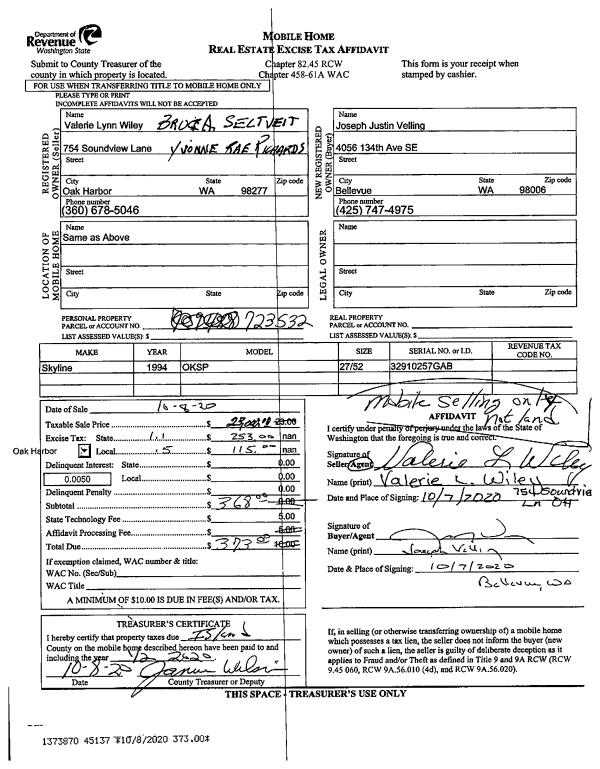 Department of
Revenue
Washington State
MOBILE HOME
REAL ESTATE EXCISE TAX AFFIDAVIT
Submit to County Treasurer of the
county in which property is located.
Chapter 82.45 RCW
Chapter 458-61A WAC
This form is your receipt when
stamped by cashier.
FOR USE WHEN TRANSFERRING TITLE TO MOBILE HOME ONLY
PLEASE TYPE OR PRINT
INCOMPLETE AFFIDAVITS WILL NOT BE ACCEPTED
REGISTERED
OWNER (Seller)
Name
Valerie Lynn Wiley BRUCE A. SELTVEIT
754 Soundview Lane YVONNE RAE RICHARDS
Street
City State Zip code
Oak Harbor WA 98277
Phone number
(360) 678-5046
NEW REGISTERED
OWNER (Buyer)
Name
Joseph Justin Velling
4056 134th Ave SE
Street
City State Zip code
Bellevue WA 98006
Phone number
(425) 747-4975
LOCATION OF
MOBILE HOME
Name
Same as Above
Street
City State Zip code
LEGAL OWNER
Name
Street
City State Zip code
PERSONAL PROPERTY
PARCEL or ACCOUNT NO. 723532
LIST ASSESSED VALUE(S): $
REAL PROPERTY
PARCEL or ACCOUNT NO.
LIST ASSESSED VALUE(S): $
MAKE YEAR MODEL SIZE SERIAL NO. or I.D. REVENUE TAX
CODE NO.
Skyline 1994 OKSP 27/52 32910257GAB
Date of Sale 10-8-20
Taxable Sale Price $ 23000.00
Excise Tax: State 1.1 $ 253.00 nan
Oak Harbor Local .5 $ 115.00 nan
Delinquent Interest: State $ 0.00
0.0050 Local $ 0.00
Delinquent Penalty $ 0.00
Subtotal $ 368.00 0.00
State Technology Fee $ 5.00
Affidavit Processing Fee $ 5.00
Total Due $ 373.00 10.00
If exemption claimed, WAC number & title:
WAC No. (Sec/Sub)
WAC Title
A MINIMUM OF $10.00 IS DUE IN FEE(S) AND/OR TAX.
Mobile Selling only
not land
AFFIDAVIT
I certify under penalty of perjury under the laws of the State of
Washington that the foregoing is true and correct.
Signature of
Seller/Agent Valerie L Wiley
Name (print) Valerie L. Wiley
Date and Place of Signing: 10/7/2020 754 Soundvia
Ln OH
Signature of
Buyer/Agent
Name (print) Joseph Velling
Date & Place of Signing: 10/7/2020
Bellevue, WA
TREASURER'S CERTIFICATE
I hereby certify that property taxes due Island
County on the mobile home described hereon have been paid to and
including the year 1/2 2020
10-8-20
Date County Treasurer or Deputy
If, in selling (or otherwise transferring ownership of) a mobile home
which possesses a tax lien, the seller does not inform the buyer (new
owner) of such a lien, the seller is guilty of deliberate deception as it
applies to Fraud and/or Theft as defined in Title 9 and 9A RCW (RCW
9.45 060, RCW 9A.56.010 (4d), and RCW 9A.56.020).
THIS SPACE - TREASURER'S USE ONLY
1373870 45137 *10/8/2020 373.00*